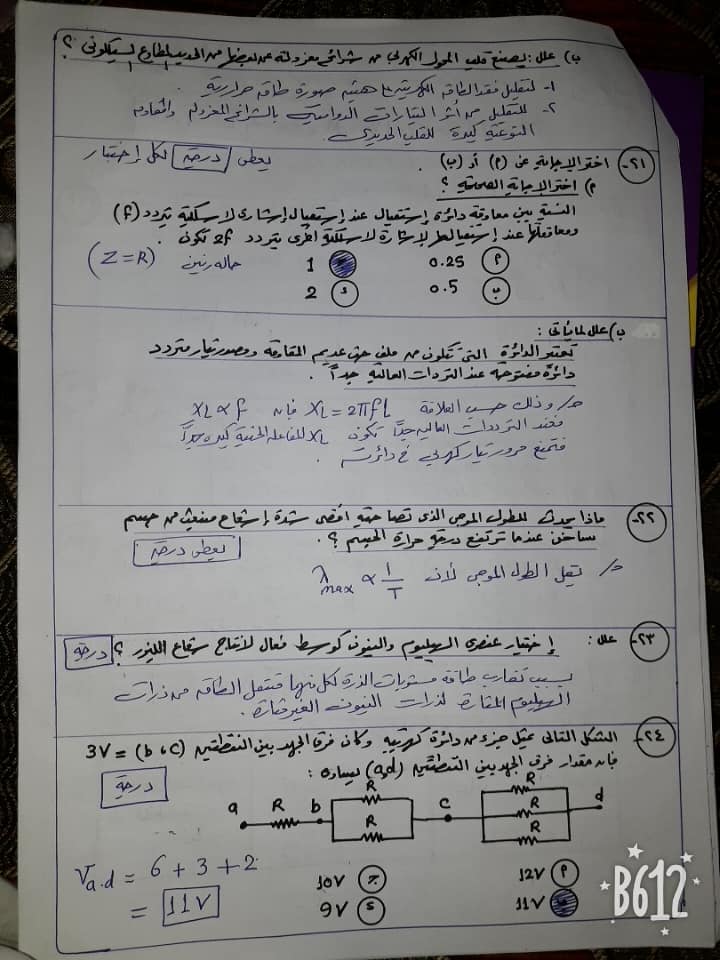 ب) علل: يصنع قلب المحول الكهربي من شرائح معزولة عن بعضها من الحديد المطاوع السيليكوني ؟
١- لتقليل فقد الطاقة الكهربية على هيئة صورة طاقة حرارية
٢- للتقليل من أثر التيارات الدوامية بالشرائح المعزولة والمقاومة
النوعية كبيرة للقلب الحديدي.
٢١- اختر الإجابة عن (م) أو (ب) . يعطى درجة لكل إختيار
م) اختر الإجابة الصحيحة ؟
النسبة بين معاوقة دائرة إستقبال عند إستقبال إشارة لاسلكية تردد (f)
ومعاوقتها عند إستقبالها لإشارة لاسلكية أخرى تردد 2f تكون .
م 0.25 ج 1 حالة رنين (Z = R)
ب 0.5 د 2
ب) علل لما يأتى :
تعتبر الدائرة التى تتكون من ملف حث عديم المقاومة ومصدر تيار متردد
دائرة مفتوحة عند الترددات العالية جداً .
ج/ وذلك حسب العلاقة XL = 2πfL فإن XL ∝ f
فعند الترددات العالية جداً تكون XL المفاعلة الحثية كبيرة جداً
فتمنع مرور تيار كهربي في دائرته .
٢٢- ماذا يحدث للطول الموجى الذى تصاحبه أقصى شدة إشعاع منبعث من جسم
ساخن عندما ترتفع درجة حرارة الجسم ؟ . يعطى درجة
ج/ يقل الطول الموجى لأن λmax ∝ 1/T
٢٣- علل : إختيار عنصرى الهيليوم والنيون كوسط فعال لإنتاج شعاع الليزر ؟ درجة
بسبب تقارب طاقة مستويات الذرة لكل منهما فتنتقل الطاقة من ذرات
الهيليوم المثارة لذرات النيون الغير مثارة .
٢٤- الشكل التالى يمثل جزء من دائرة كهربية وكان فرق الجهد بين النقطتين (b ، c) = 3V
فإن مقدار فرق الجهد بين النقطتين (a,d) يساوى :
درجة
a R b R R c R R R d
Va.d = 6 + 3 + 2
= 11V
م 12V ج 10V
ب 11V د 9V
B612